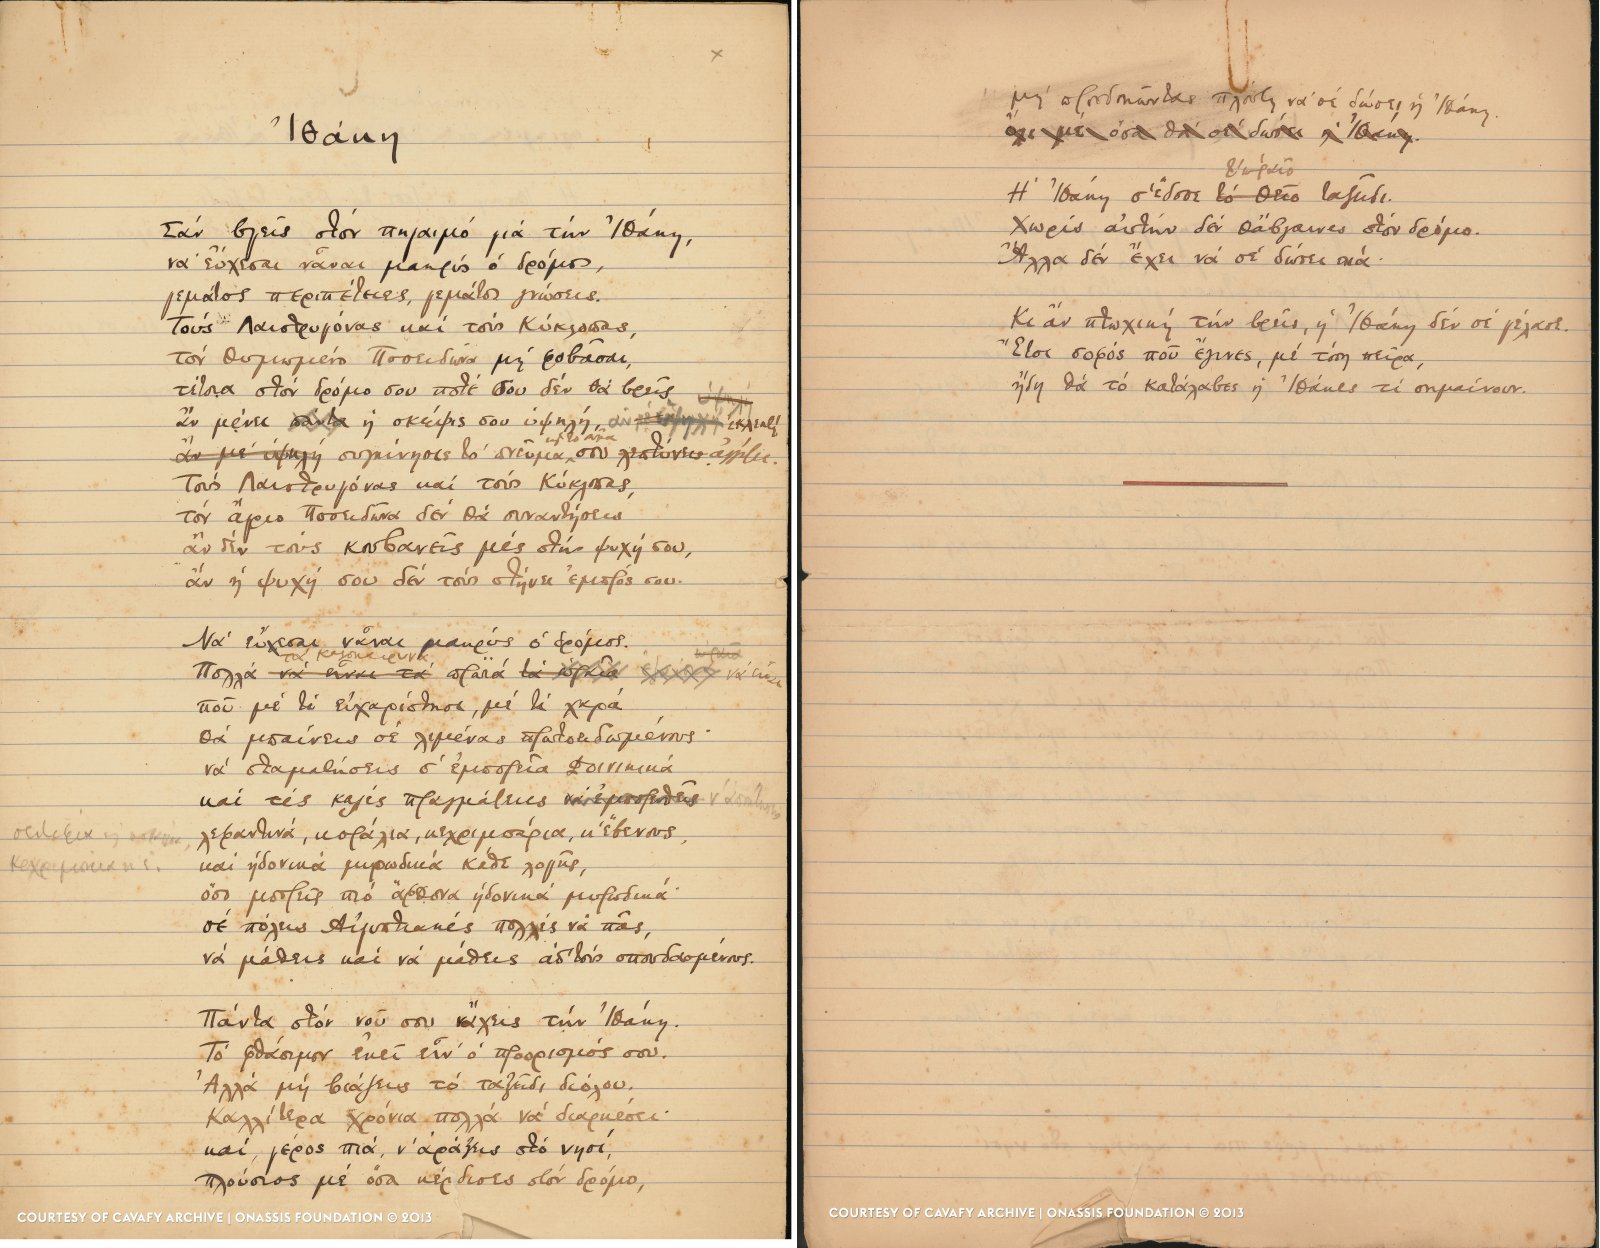 Ἰθάκη
Σάν βγεῖς στόν πηγαιμό γιά τήν Ἰθάκη,
νά εὔχεσαι νἆναι μακρύς ὁ δρόμος,
γεμάτος περιπέτειες, γεμάτος γνώσεις.
Τούς Λαιστρυγόνας καί τούς Κύκλωπας,
τόν θυμωμένο Ποσειδῶνα μή φοβᾶσαι,
τέτοια στόν δρόμο σου ποτέ σου δέν θά βρεῖς
ὑψηλή
ἄν μένει πάντα ἡ σκέψις σου ὑψηλή, ἄν ἐκλεκτή
ἄν μέ ὑψηλή συγκίνησις τό πνεῦμα καί τό σῶμα σου λεπτύνει ἀγγίζει.
Τούς Λαιστρυγόνας καί τούς Κύκλωπας,
τόν ἄγριο Ποσειδῶνα δέν θά συναντήσεις
ἄν δέν τούς κουβανεῖς μές στήν ψυχή σου,
ἄν ἡ ψυχή σου δέν τούς στήνει ἐμπρός σου.
Νά εὔχεσαι νἆναι μακρύς ὁ δρόμος.
τά καλοκαιρινά
Πολλά νά εἶναι τά πρωϊά τά ὡραῖα νά εἶναι
πού μέ τί εὐχαρίστησι, μέ τί χαρά
θά μπαίνεις σέ λιμένας πρωτοειδωμένους·
νά σταματήσεις σ' ἐμπορεῖα Φοινικικά
καί τές καλές πραγμάτειες νά ἐμπορευθεῖς ν' ἀποκτήσεις
σεντέφια καί κοράλλια,
κεχριμπάρια κ' ἐ.
λεφαντινά, κοράλια, κεχριμπάρια, κ' ἔβενους,
καί ἡδονικά μυρωδικά κάθε λογῆς,
ὅσο μπορεῖς πιό ἄφθονα ἡδονικά μυρωδικά·
σέ πόλεις Αἰγυπτιακές πολλές νά πᾶς,
νά μάθεις καί νά μάθεις ἀπ' τούς σπουδασμένους.
Πάντα στόν νοῦ σου νἄχεις τήν Ἰθάκη.
Τό φθάσιμον ἐκεῖ εἶν' ὁ προορισμός σου.
Ἀλλά μή βιάζεις τό ταξεῖδι διόλου.
Καλλίτερα χρόνια πολλά νά διαρκέσει·
καί, γέρος πιά, ν' ἀράξεις στό νησί,
πλούσιος μέ ὅσα κέρδισες στόν δρόμο,
COURTESY OF CAVAFY ARCHIVE | ONASSIS FOUNDATION © 2013
μή προσδοκῶντας πλούτη νά σέ δώσει ἡ Ἰθάκη.
ὄχι μέ ὅσα θά σέ δώσει ἡ Ἰθάκη.
τ' ὡραῖο
Η Ἰθάκη σ' ἔδωσε τό θεῖο ταξεῖδι.
Χωρίς αὐτήν δέν θἄβγαινες στόν δρόμο.
Ἄλλα δέν ἔχει νά σέ δώσει πιά.
Κι ἄν πτωχική τήν βρεῖς, ἡ Ἰθάκη δέν σέ γέλασε.
Ἔτσι σοφός πού ἔγινες, μέ τόση πεῖρα,
ἤδη θά τό κατάλαβες ἡ Ἰθάκες τί σημαίνουν.
COURTESY OF CAVAFY ARCHIVE | ONASSIS FOUNDATION © 2013